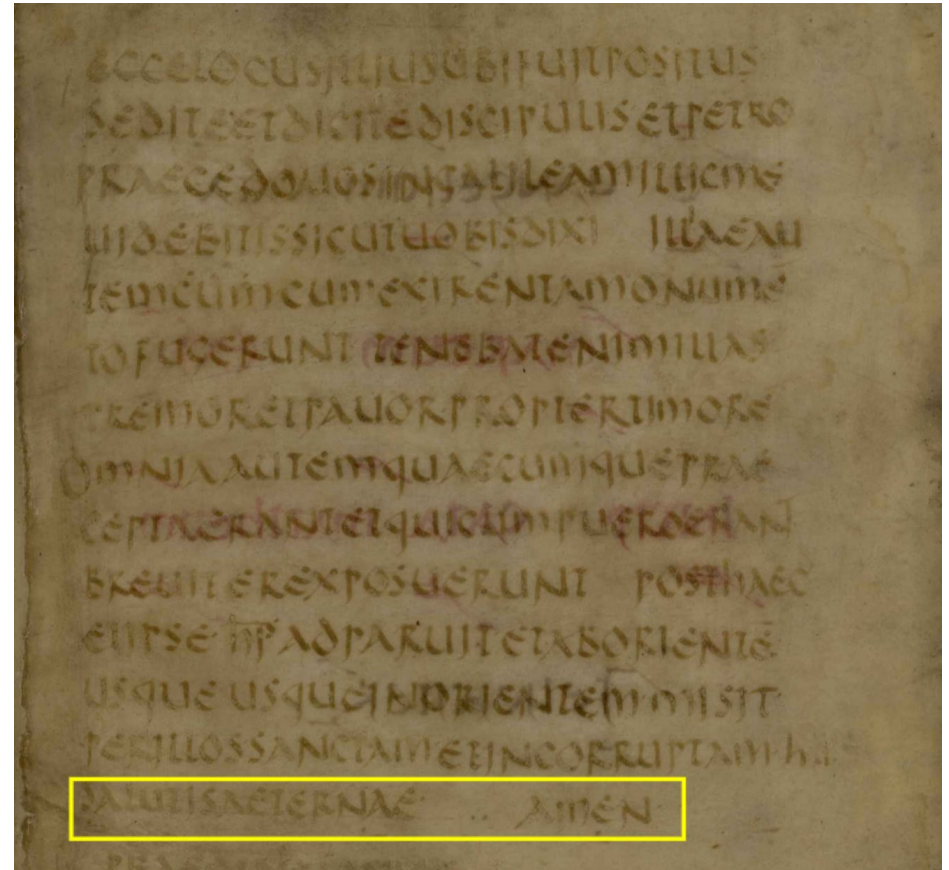 ECCELOCUSILLIUSUBIFUITPOSITUS
SEDITEETDICITEDISCIPULISETPETRO
PRAECEDOUOSINGALILEAMILLICME
UIDEBITISSICUTUOBISDIXI ILLAEAU
TEMCUMCUMEXIRENTAMONUME
TOFUGERUNT TENEBATENIMILLAS
TREMORETPAUORPROPTERTIMORE
OMNIAAUTEMQUAECUMQUEPRAE
CEPTAERANTETQUICUMPUEROERAN
BREUITEREXPOSUERUNT POSTHAEC
ETIPSE ADPARUITETABORIENTE
USQUE USQUEINORIENTEMMISIT
PERILLOSSANCTAMETINCORRUPTAM
SALUTISAETERNAE AMEN